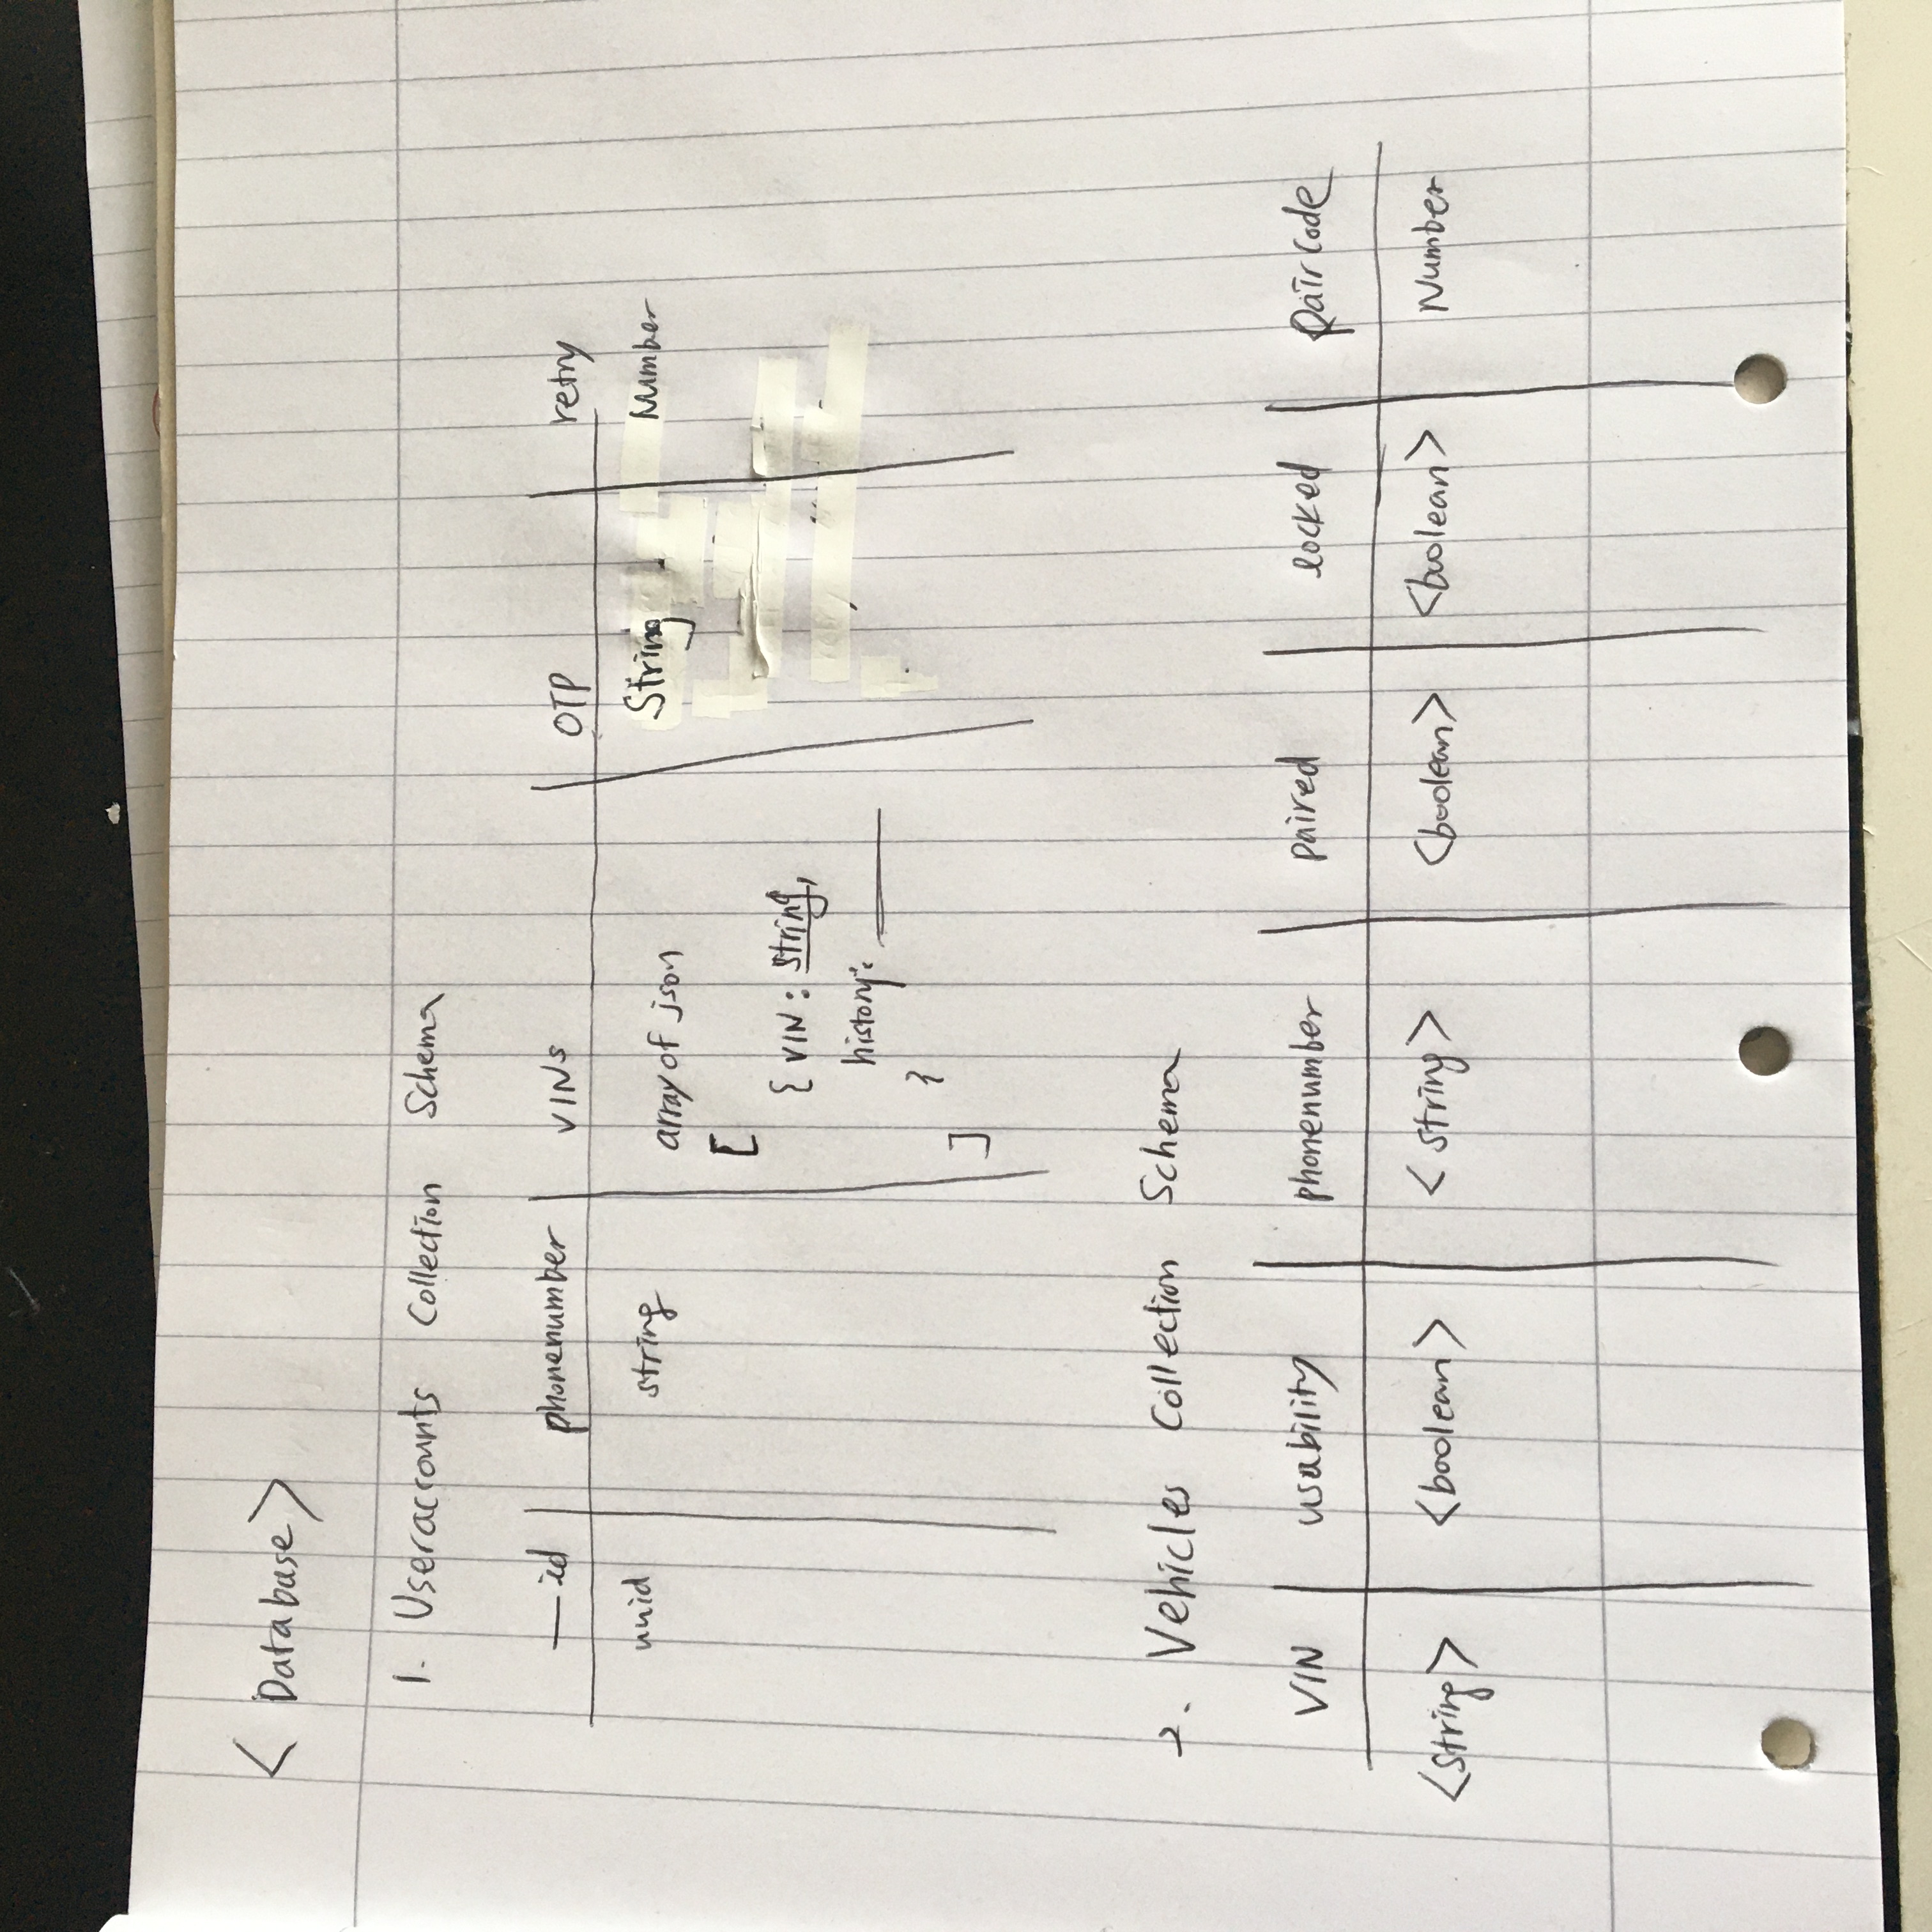 < Database >
1. Useraccounts Collection Schema
_id phonenumber VINs OTP retry
uuid string array of json String Number
[
{ VIN : string,
history: ____
}
]
2. Vehicles Collection Schema
VIN usability phonenumber paired locked paircode
<string> <boolean> <string> <boolean> <boolean> Number